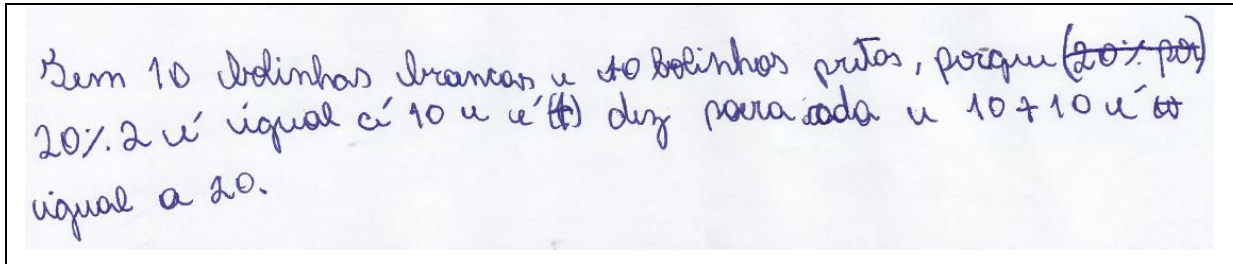 Tem 10 bolinhas brancas e 10 bolinhas pretas, porque (20% por)
20%.2 é igual á 10 e é (t) dez para cada e 10+10 é
igual a 20.